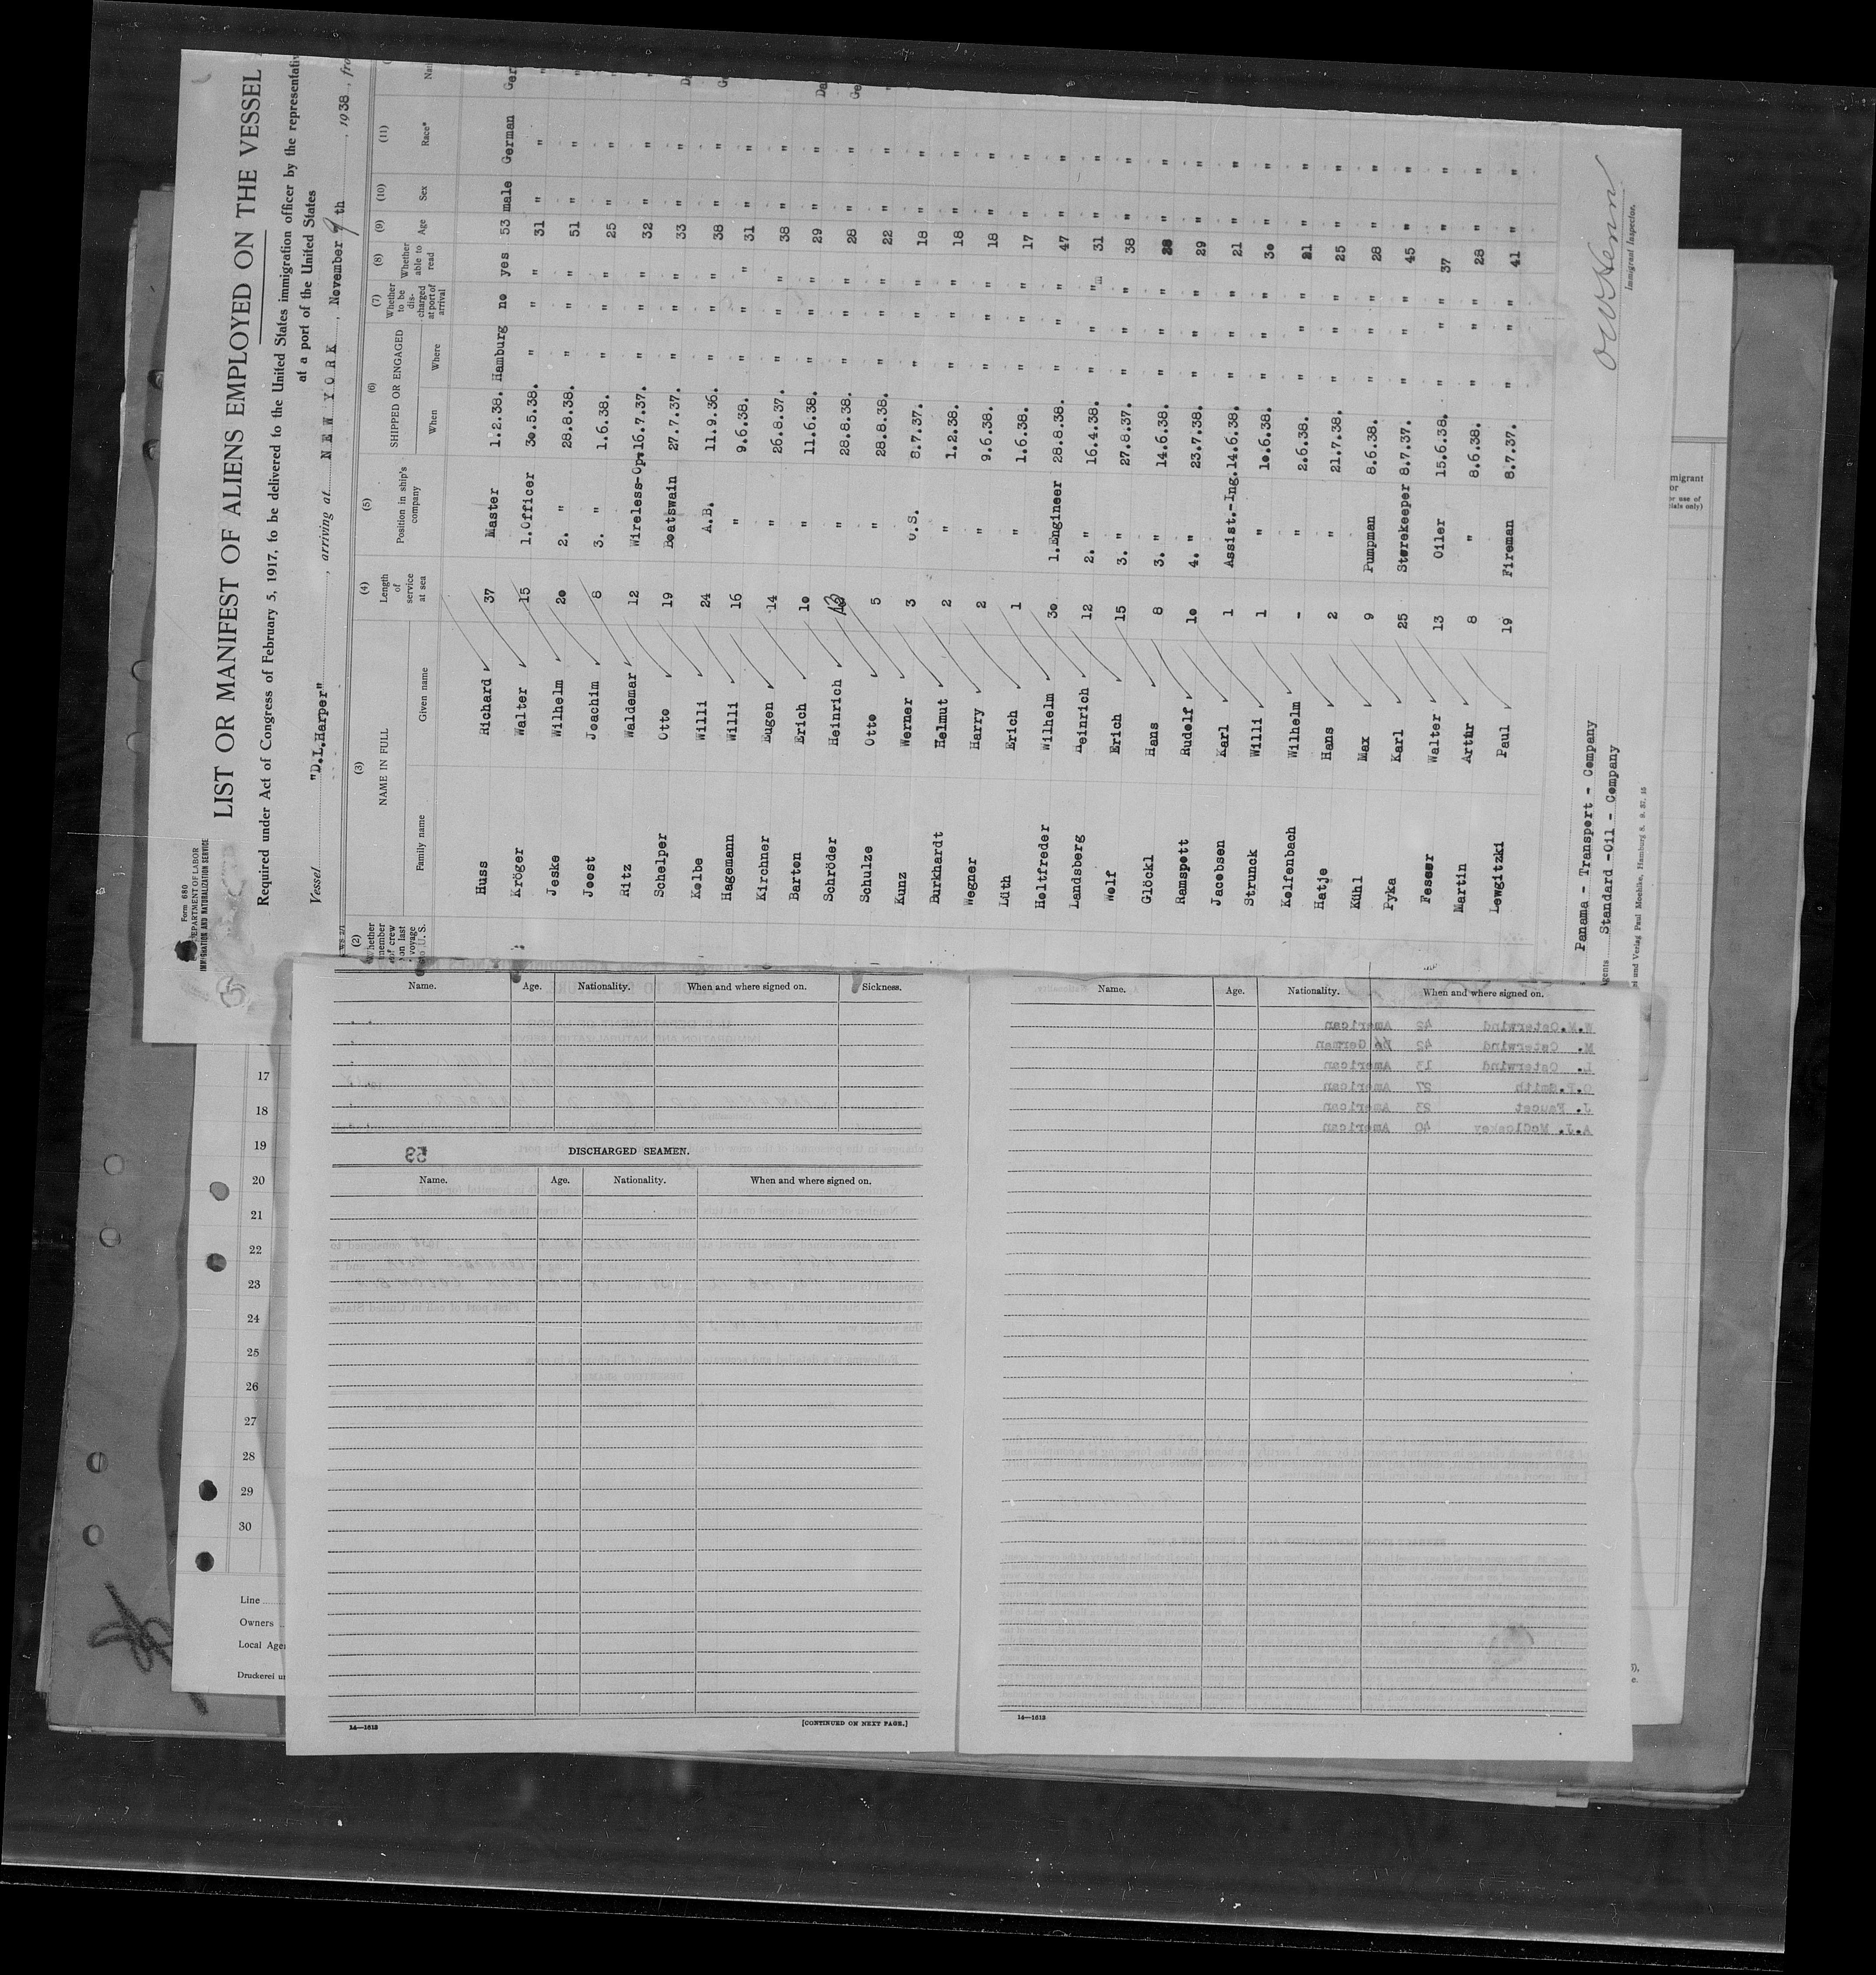 Form 680
DEPARTMENT OF LABOR
IMMIGRATION AND NATURALIZATION SERVICE
LIST OR MANIFEST OF ALIENS EMPLOYED ON THE VESSEL
Required under Act of Congress of February 5, 1917, to be delivered to the United States immigration officer by the representativ
at a port of the United States
Vessel "D.L.Harper" , arriving at NEW YORK , November 9 th , 1938 , fro
(2) (3) (4) (5) (6) (7) (8) (9) (10) (11)
Whether member of crew on last voyage to U. S. NAME IN FULL Length of service at sea Position in ship's company SHIPPED OR ENGAGED Whether to be discharged at port of arrival Whether able to read Age Sex Race* Nat
Family name Given name When Where
Huss Richard 37 Master 1.2.38. Hamburg no yes 53 male German Ger
Kröger Walter 15 1.Officer 30.5.38. " " " 31 " " "
Jeske Wilhelm 20 2. " 28.8.38. " " " 51 " " "
Joost Joachim 8 3. " 1.6.38. " " " 25 " " "
Ritz Waldemar 12 Wireless-Op. 16.7.37. " " " 32 " " "
Schelper Otto 19 Boatswain 27.7.37. " " " 33 " " Da
Kolbe Willi 24 A.B. 11.9.36. " " " 38 " " Ge
Hagemann Willi 16 " 9.6.38. " " " 31 " "
Kirchner Eugen 14 " 26.8.37. " " " 38 " "
Barten Erich 10 " 11.6.38. " " " 29 " " Da
Schröder Heinrich " 28.8.38. " " " 28 " " Ge
Schulze Otto 5 " 28.8.38. " " " 22 " " "
Kunz Werner 3 O.S. 8.7.37. " " " 18 " "
Burkhardt Helmut 2 " 1.2.38. " " " 18 " "
Wegner Harry 2 " 9.6.38. " " " 18 " "
Lüth Erich 1 " 1.6.38. " " " 17 " "
Holtfreder Wilhelm 30 1.Engineer 28.8.38. " " " 47 " "
Landsberg Heinrich 12 2. " 16.4.38. " " " 31 " "
Wolf Erich 15 3. " 27.8.37. " " " 38 " "
Glöckl Hans 8 3. " 14.6.38. " " " 28 " "
Ramspott Rudolf 10 4. " 23.7.38. " " " 29 " "
Jacobsen Karl 1 Assist.-Ing. 14.6.38. " " " 21 " "
Strunck Willi 1 " 10.6.38. " " " 30 " "
Kolfenbach Wilhelm - " 2.6.38. " " " 21 " "
Hatje Hans 2 " 21.7.38. " " " 25 " "
Kühl Max 9 Pumpman 8.6.38. " " " 28 " "
Pyka Karl 25 Storekeeper 8.7.37. " " " 45 " "
Fesser Walter 13 Oiler 15.6.38. " " " 37 " "
Martin Artur 8 " 8.6.38. " " " 28 " "
Lewgitzki Paul 19 Fireman 8.7.37. " " " 41 " "
Panama - Transport - Company
gents Standard -Oil - Company
Immigrant Inspector.
i und Verlag Paul Moehlke, Hamburg 8. 9. 37. 15
migrant
or
or use of
ials only)
Name. Age. Nationality. When and where signed on. Sickness.
53
DISCHARGED SEAMEN.
Name. Age. Nationality. When and where signed on.
14—1613
[CONTINUED ON NEXT PAGE.]
Name. Age. Nationality. When and where signed on.
W.M.Osterwind 42 American
M. Osterwind 42 German
L. Osterwind 13 American
O.F.Smith 27 American
J. Faucet 23 American
A.J. McCloskey 40 American
14—1613
17
18
19
20
21
22
23
24
25
26
27
28
29
30
Line
Owners
Local Agen
Druckerei u